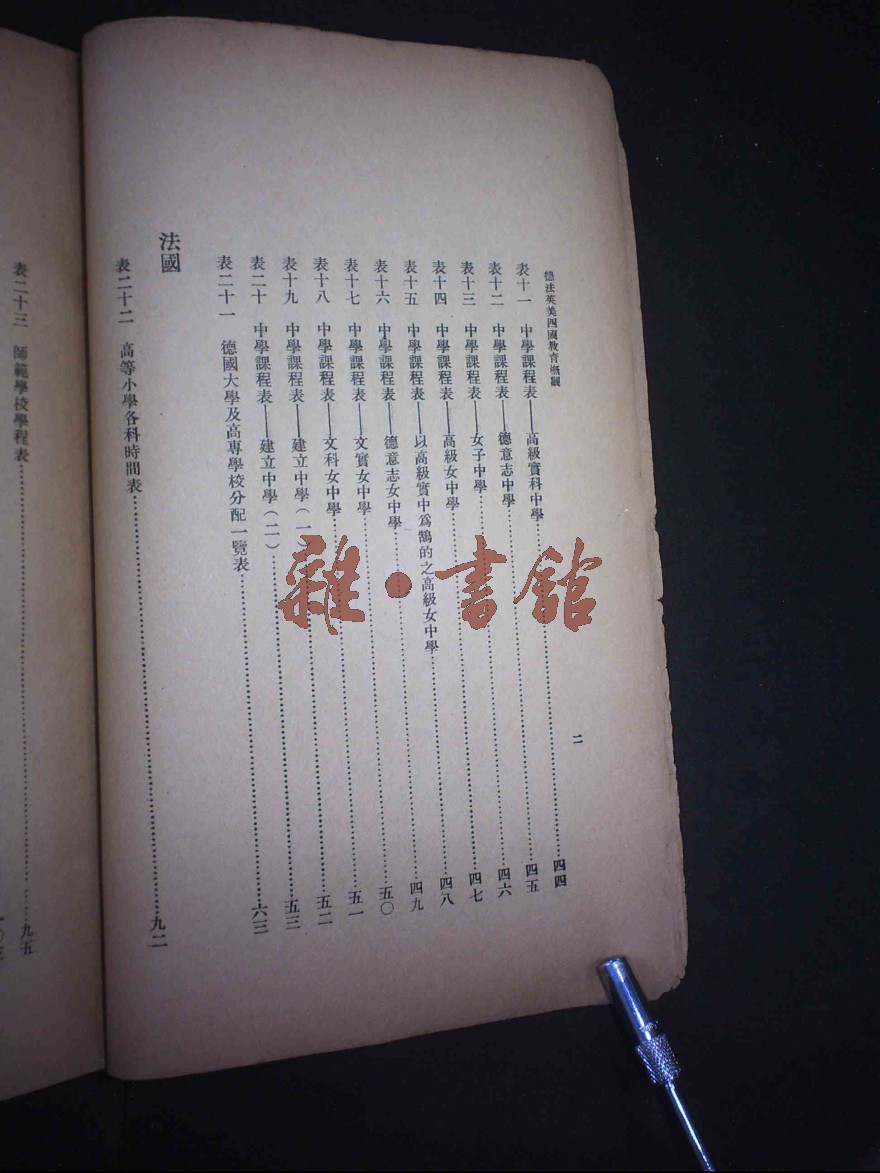 德法英美四國教育概觀
二
表十一　中學課程表——高級實科中學……四四
表十二　中學課程表——德意志中學……四五
表十三　中學課程表——女子中學……四六
表十四　中學課程表——高級女中學……四七
表十五　中學課程表——以高級實中爲鵠的之高級女中學……四八
表十六　中學課程表——德意志女中學……四九
表十七　中學課程表——文實女中學……五〇
表十八　中學課程表——文科女中學……五一
表十九　中學課程表——建立中學(一)……五二
表二十　中學課程表——建立中學(二)……五三
表二十一　德國大學及高專學校分配一覽表……六三
法國
表二十二　高等小學各科時間表……九二
表二十三　師範學校學程表……九五
雜·書館